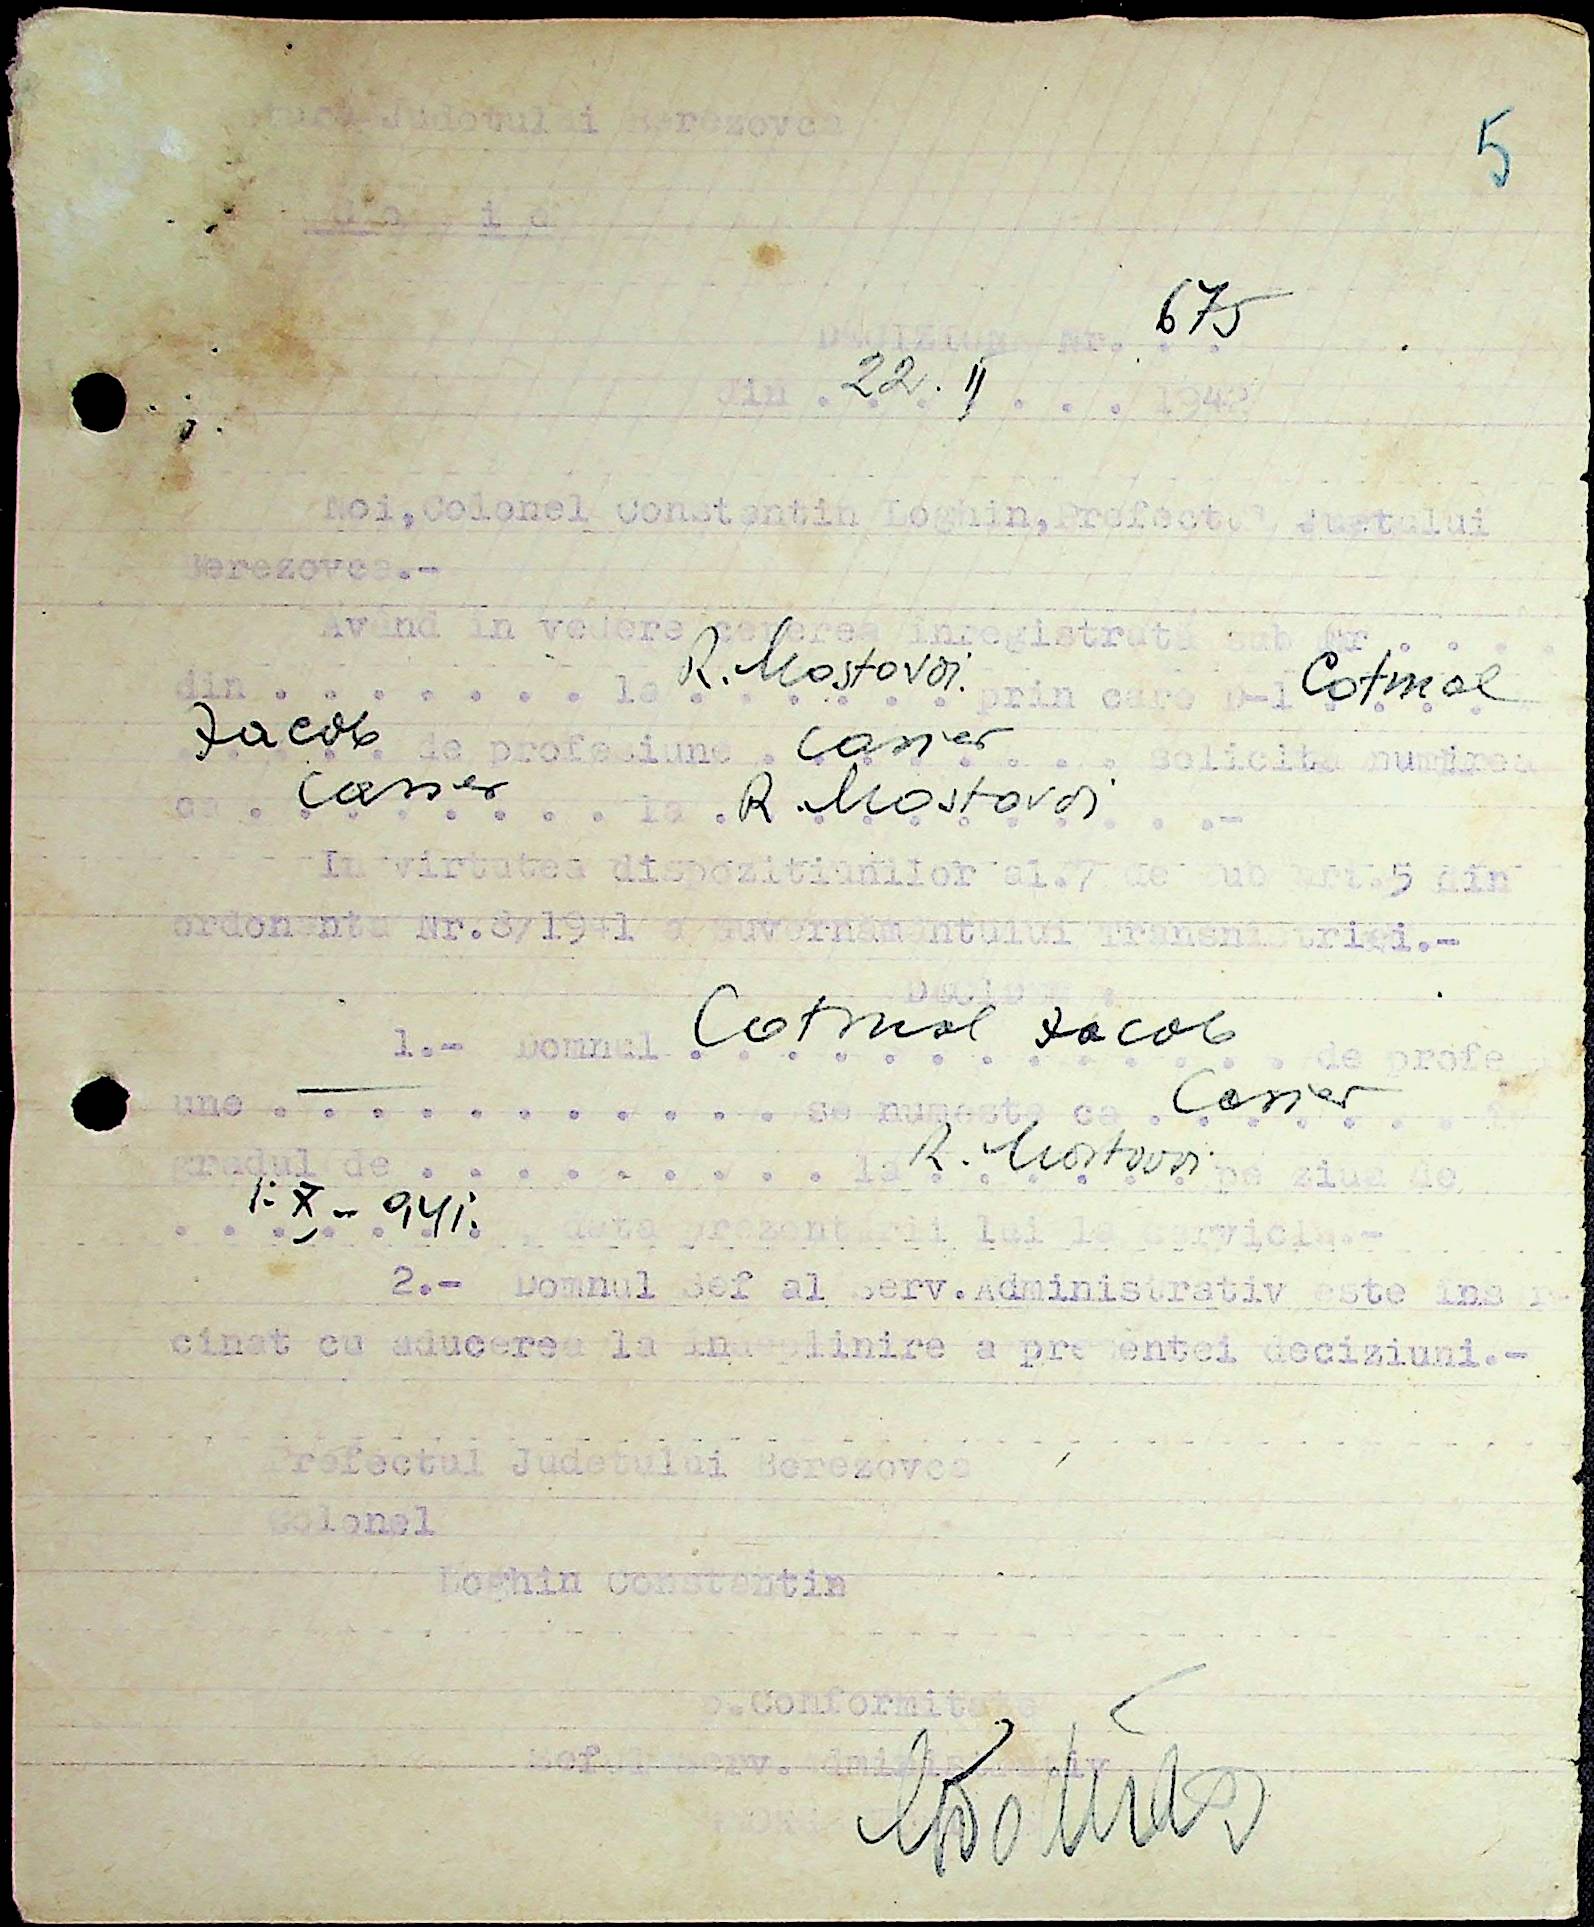 5
Judetului Berezovca
675
DECIZIUNE Nr. . .
din . 22. II . . . 1942
Noi, Colonel Constantin Loghin, Prefectul Judetului
Berezovca.-
Având in vedere cererea inregistrată sub Nr . . . .
din . . . . . . . la R. Mostovoi. prin care D-l Cotmal
Iacob de profesiune . casier . solicită numirea
ca . Casier . la . R. Mostovoi . .-
In virtutea dispozitiunilor al.7 de sub art.5 din
ordonanta Nr.8/1941 a Guvernământului Transnistriei.-
DECIDEM :
1.- Domnul . Cotmal Iacob . de profe
une . — . . . . . . . . . se numeste ca . Casier .
gradul de . . . . . . . . . la R. Mostovoi pe ziua de
1. X - 941. , data prezentării lui la serviciu.-
2.- Domnul Sef al Serv. Administrativ este insăr
cinat cu aducerea la indeplinire a prezentei deciziuni.-
Prefectul Judetului Berezovca
Colonel
Loghin Constantin
p.Conformitate
Seful Serv. Administrativ